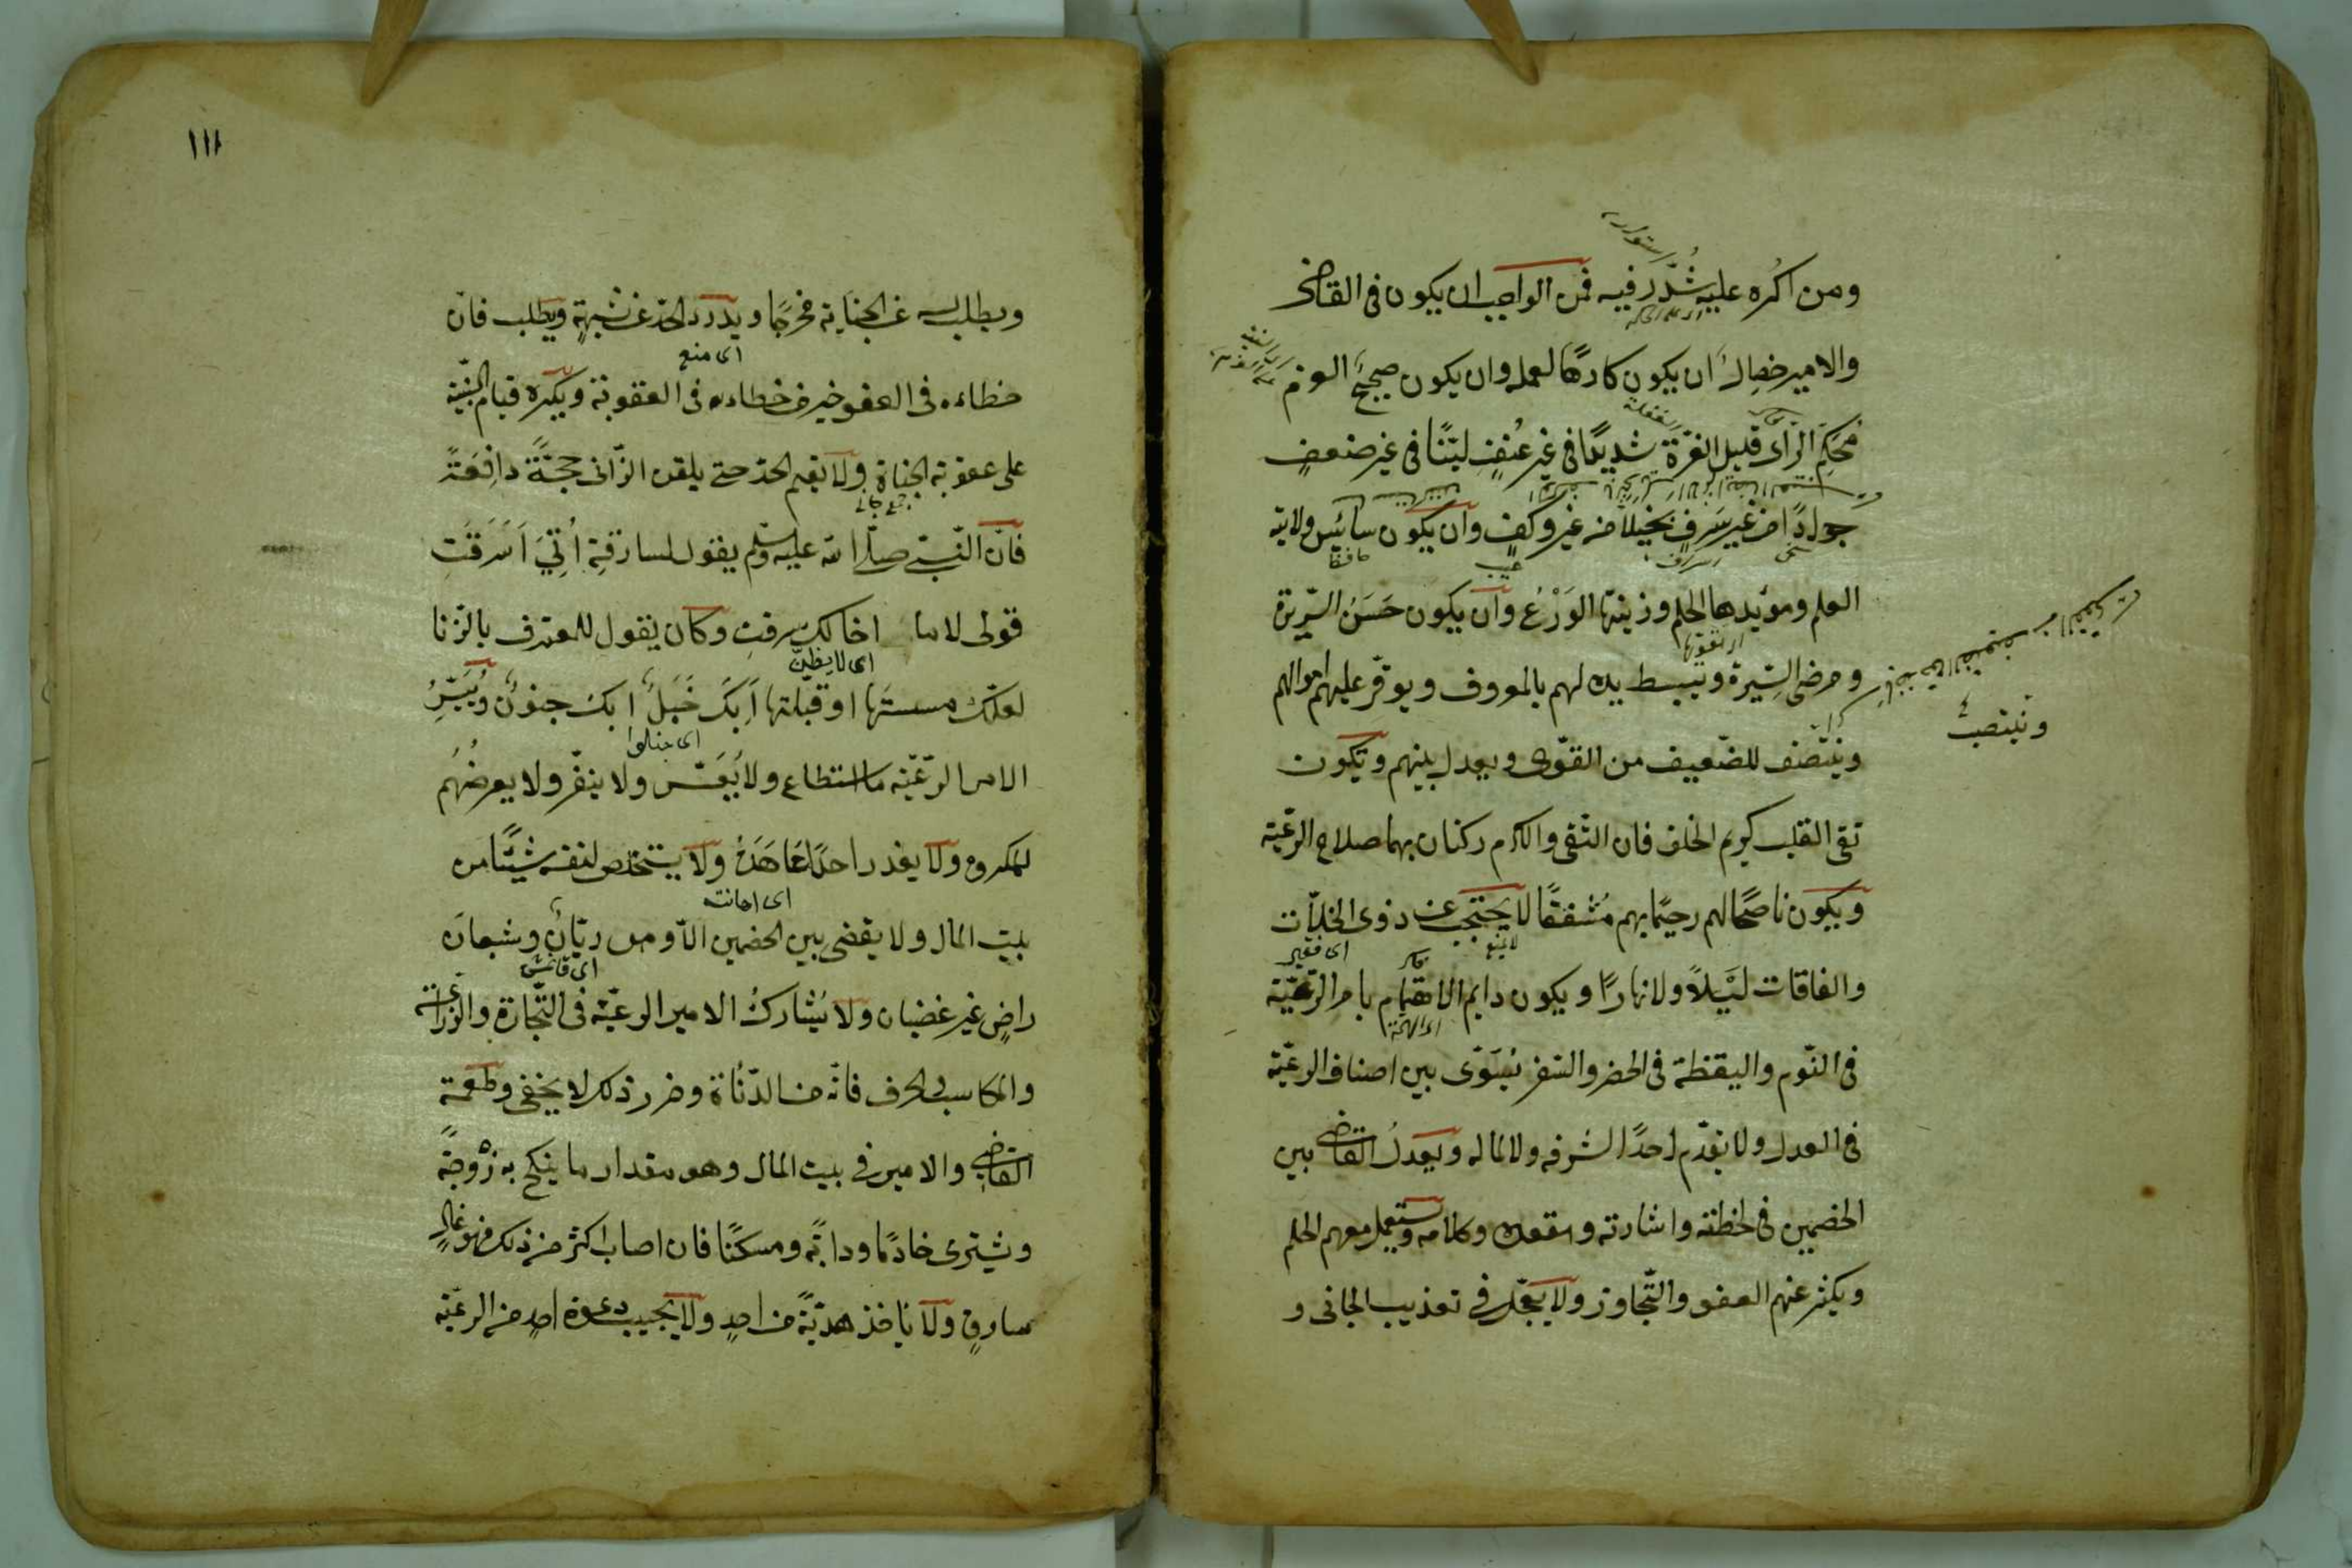 ومن اكره عليه شدّد فيه فمن الواجب ان يكون فى القاضى
والامير خصال ان يكون كارهًا لعمله وان يكون صحيح العزم
محكم الرّاى قليل الغرّة شديدًا فى غير عُنفٍ ليّنًا فى غير ضعفٍ
جوادًا من غير سَرفٍ بخيلًا من غير وكفٍ وان يكون سائس ولايته
العلم ومؤيدها الحلم وزينتها الوَرْعُ وان يكون حَسَنُ السّريرة
ومرضى السّيرة ويبسط يده لهم بالمعروف ويوفّر عليهم اموالهم
وينتصف للضّعيف من القوّى ويعدل بينهم ويكون
تقى القلب كريم الخلق فان التّقى والكرم ركنان بهما صلاح الرّعيّة
ويكون ناصحًا لهم رحيمًا بهم مُشفقًا لا يحتجب عن ذوى الخلّات
والفاقات لَيْلًا ولا نهارًا ويكون دايم الاهتمام بامر الرّعيّة
فى النّوم واليقظة فى الحضر والسّفر يُسَوّى بين اصناف الرعيّة
فى العدل ولا يقدّم احدًا لشرفه ولا لماله ويعدلُ القاضى بين
الخصمين فى لحظته واشارته ومقعده وكلامه ويستعمل معهم الحلم
ويكثر عنهم العفو والتّجاوز ولا يعجّل فى تعذيب الجانى و
وينتصب
١١١
ويطلب له عن الجناية مخرجًا ويدرء الحدّ عن شبهةٍ ويطلب فانّ
اى منع
خطاءه فى العفو خير من خطاءه فى العقوبة ويكره قيام البيّنة
على عقوبة الجناة ولا يقيم الحدّ حتى يلقن الزّانى حجّةً دافعةً
جمع جانى
فانّ النّبىّ صلّى الله عليه وسلّم يقول لسارقةٍ اُتِيَ اَسَرَقتِ
قولى لا ما اخالك سرقتِ وكان يقول للمعترف بالزّنا
اى لا يظنّ
لعلّك مسستَها او قبلتها اَبِكَ خَبَلٌ ابك جنونٌ ويُيَسِّرُ
الامر الرّعيّة ما استطاع ولا يُعَسّر ولا ينفّر ولا يعرضُهم
لمكروه ولا يغدر احدًا عَاهَدَهُ ولا يستخلص لنفسه شيئًا من
اى اهانت
بيت المال ولا يقضى بين الخصمين الّا وهو ريّان وشبعان
راضٍ غير غضبان ولا يُشارك الامير الرعيّة فى التّجارة والزراعة
والمكاسب والحرف فانّه من الدّناءة وضرر ذلك لا يخفى وطعمة
القاضى والامير فى بيت المال وهو مقدار ما ينكح به زوجةً
ويشترى خادمًا ودابّةً ومسكنًا فان اصاب اكثر من ذلك فهو غالٍ
سارقٍ ولا ياخذ هديّةً من احدٍ ولا يجيب دعوة احدٍ من الرعيّة